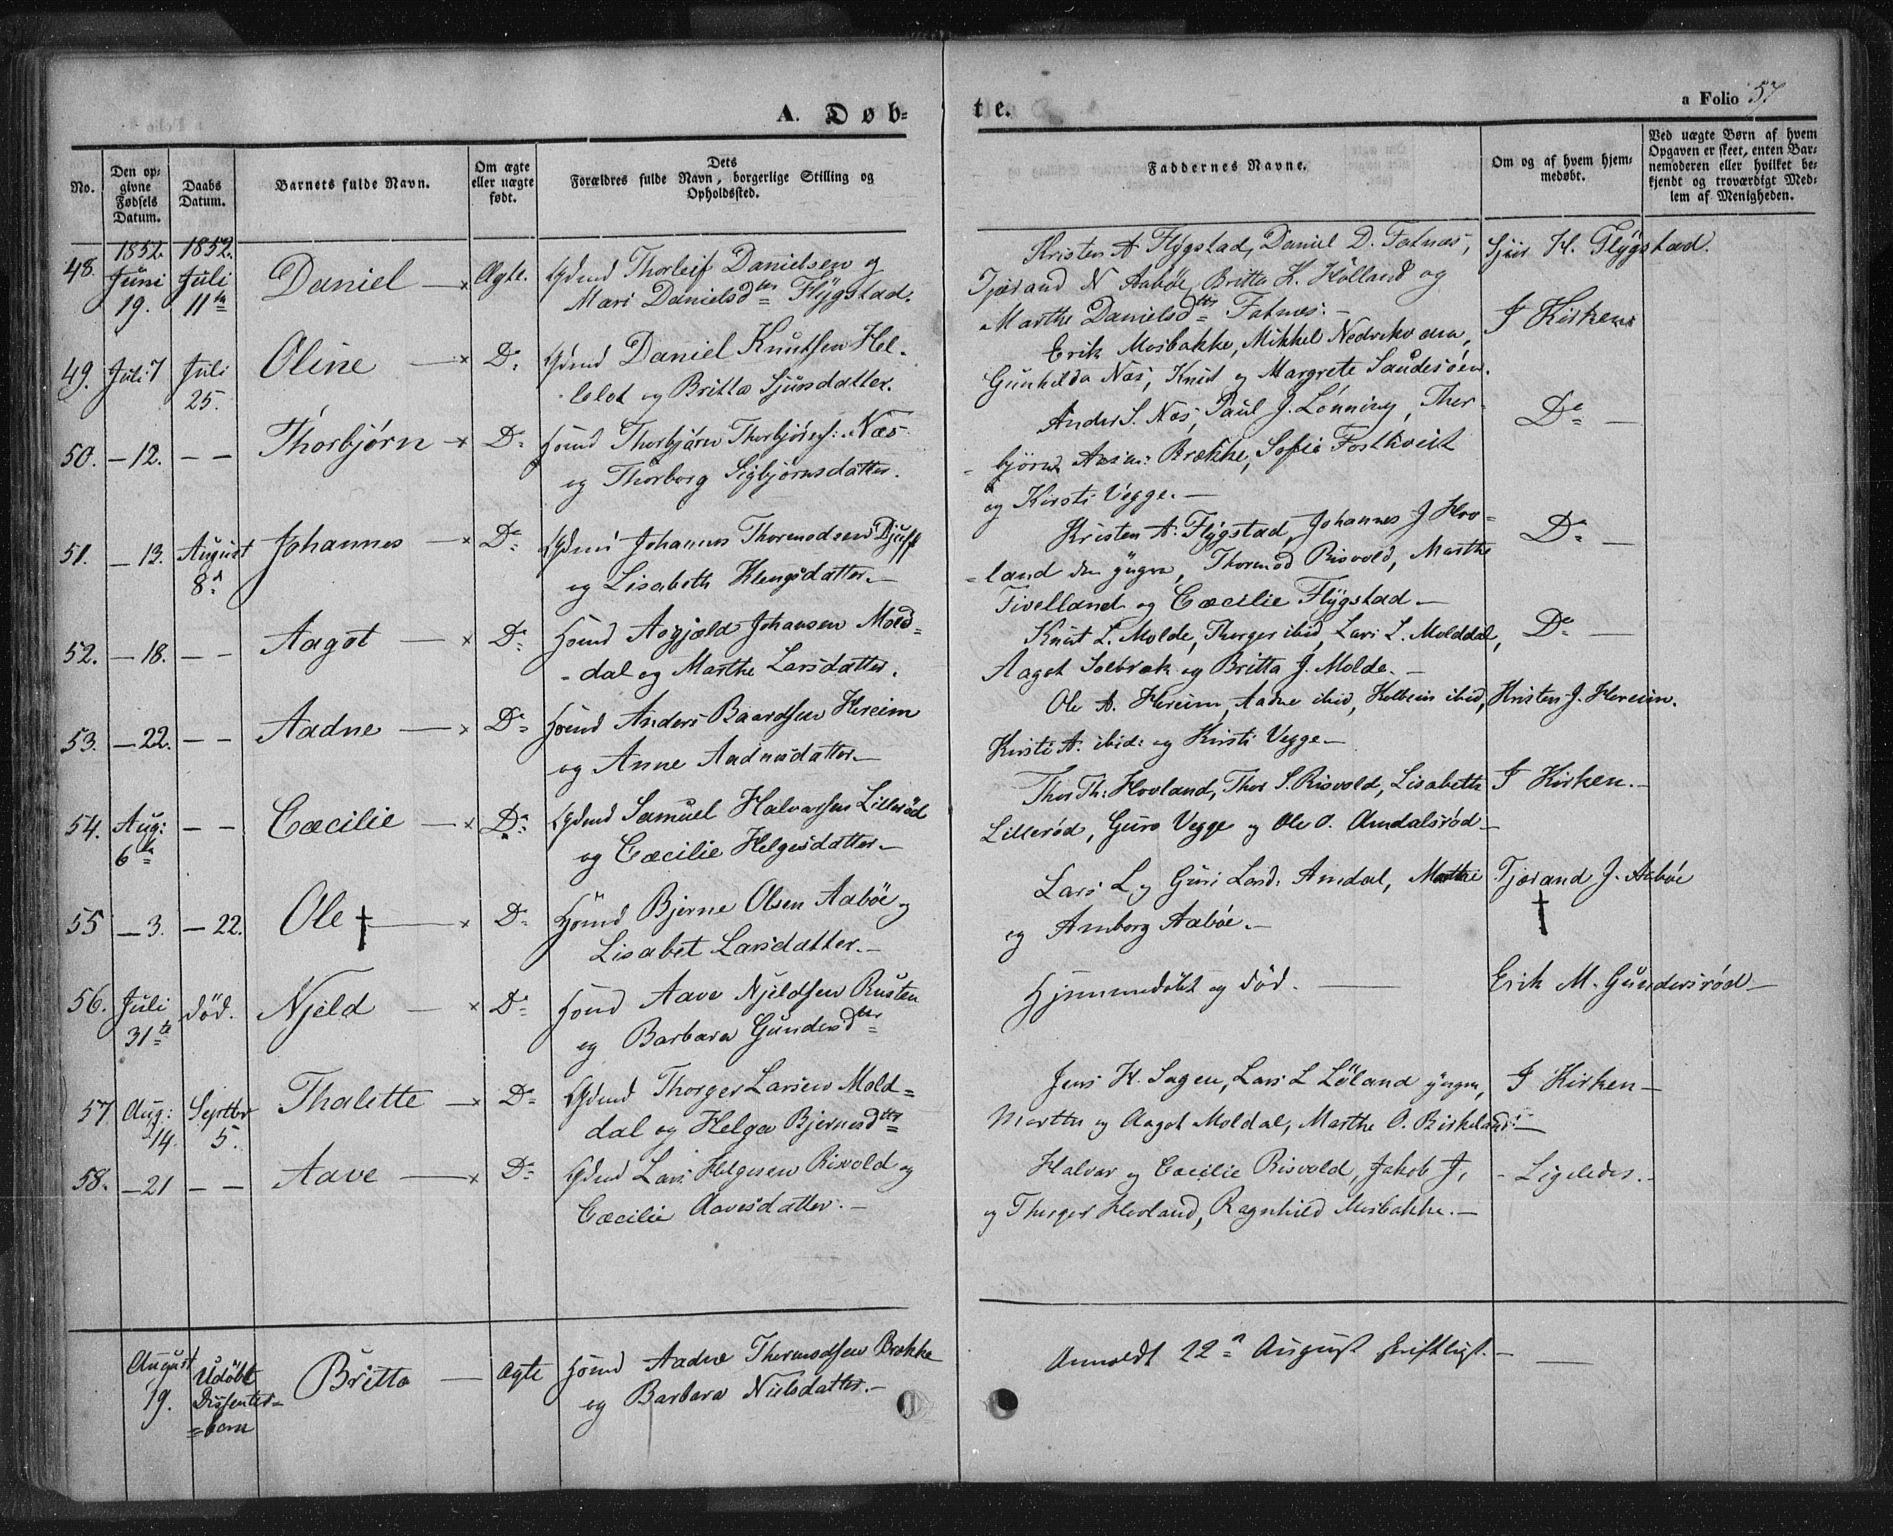 A. Døbte.
a Folio 57
No.
Den opgivne Fødsels Datum.
Daabs Datum.
Barnets fulde Navn.
Om ægte eller uægte født.
Dets Forældres fulde Navn, borgerlige Stilling og Opholdssted.
Faddernes Navne.
Om og af hvem hjemmedøbt.
Ved uægte Børn af hvem Opgaven er skeet, enten Barnemoderen eller hvilket bekjendt og troværdigt Medlem af Menigheden.
1852. 1852.
48. Juni 19. Juli 11te Daniel Ægte.
Thorleif Danielsen og
Mari Danielsdtr Flÿgstad.
Kristen A Flÿgstad, Daniel D. Fatnæs,
Tjærand N Aabøe, Britta H. Hölland og
Marthe Danielsdtr Fatnæs.
H. Flÿgstad.
49. Juli 7 Juli 25. Oline Do
Daniel Knutsen Hel-
og Britta Sjursdatter.
Erik Mosbakke, Mikkel
Gunhilda Næs, Knut og Margrete
I Kirken
50. — 12. — — Thorbjørn Do
Thorbjørn Næs
og Thorborg Sigbjørnsdatter.
Anders S. Næs, Paul J. Lönning, Thor-
bjørn Brække, Sofie
og Kirsti Vegge.
Do
51. — 13. August 8d Johannes Do
Johannes Thormodsen Djuff
og Lisabeth Klengsdatter
Kristen A. Flÿgstad, Johannes J Hov-
land den yngre, Thormod Risvold, Marthe
Tivelland og Cæcilie Flÿgstad
Do
52. — 18. — — Aagot Do
Asgjæld Johansen Mold-
dal og Marthe Larsdatter.
Knut L. Molde, Thorger ibid, Lars L. Molddal,
Aagot Solbræk og Britta J. Molde.
Do
53. — 22. — — Aadne Do
Anders Baardsen Hereim
og Anne Aadnesdatter
Ole A. Hereim, Aadne ibid, Kolbein ibid,
Kirsti A. ibid: og Kirsti Vegge
Kristen J. Hereim.
54. Aug: 6te — — Cæcilie Do
Samuel Halvorsen Lillerød
og Cæcilie Helgesdatter
Thor Th: Hovland, Thor S. Risvold, Lisabeth
Lillerød, Guro Vegge og Ole O. Amdalsrød
I Kirken.
55 — 3. — 22. Ole † Do
Bjerne Olsen Aabøe og
Lisabet Larsdatter.
Lars L. og Guri Larsd. Amdal, Marthe
og Amborg Aabøe.
Tjærand J. Aabøe
†
56. Juli 31te død. Njeld Do
Aave Njeldsen Rusten
og Barbara Gundersdtr
Hjemmedøbt og død.
Erik M. Gundersrød
57 Aug: 14. Septbr 5. Thalette Do
Thorger Larsen Mold-
dal og Helga Bjernesdtr
Jens H. Sagen, Lars L Löland yngre,
Marthe og Aagot Moldal, Marthe O. Birkeland
I Kirken
58. — 21 — — Aave Do
Lars Helgesen Risvold og
Cæcilie Aavesdatter.
Halvor og Cæcilie Risvold, Jakob J,
og Thorger Hovland, Ragnhild Mosbakke.
Ligeledes.
August 19. Udöbt Dissenter-barn Britta Ægte
Aadne Thormodsen Brække
og Barbara Nielsdatter.
Anmeldt 22d August skriftligt.